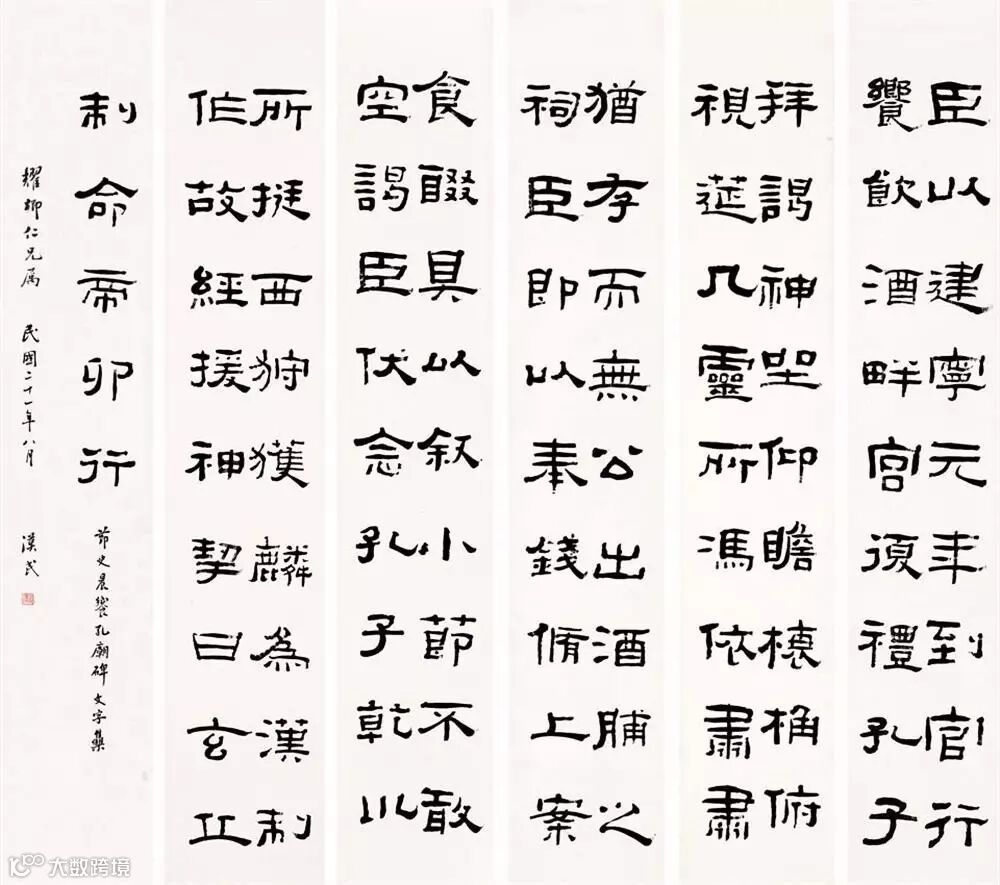 臣以建寧元年到官行
饗飲酒畔宮復禮孔子
拜謁神坐仰瞻榱桷俯
視筵几靈所馮依肅肅
猶存而無公出酒脯之
祠臣即以奉錢脩上案
食醊具以叙小節不敢
空謁臣伏念孔子乾川
所挺西狩獲麟為漢制
作故經援神契曰玄丘
制命帝卯行
節史晨饗孔廟碑文字集
耀卿仁兄属 民國二十一年八月 漢民
大数跨境